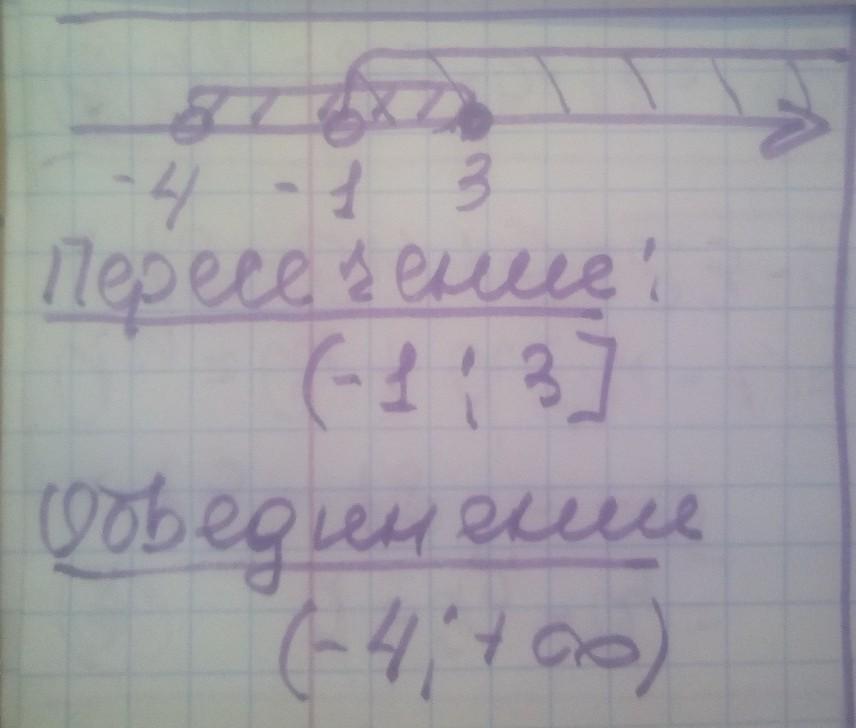 -4 -1 3
Пересечение:
(-1; 3]
Объединение
(-4; +∞)